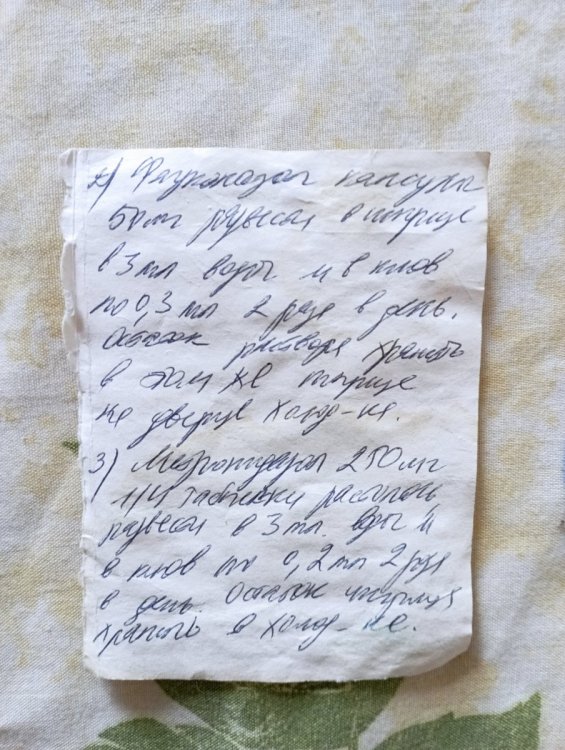 2) Флуконазол капсулы
50 мг развести в шприце
в 3 мл воды и в клюв
по 0,3 мл 2 раза в день.
Остаток раствора хранить
в том же шприце
на дверце холод-ке.
3) Метронидазол 250 мг
1/4 таблетки растолочь
развести в 3 мл. воды и
в клюв по 0,2 мл 2 раза
в день. Остаток шприца
хранить в холод-ке.